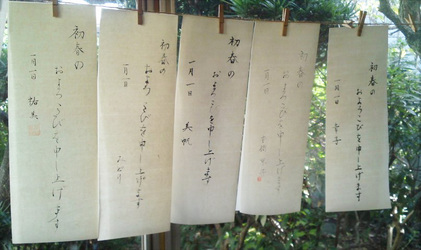 初春の
およろこびを申し上げます
一月一日
幸子
初春の
およろこびを申し上げます
一月一日
初春の
およろこびを申し上げます
一月一日
美帆
初春の
およろこびを申し上げます
一月一日
みかり
初春の
およろこびを申し上げます
一月一日